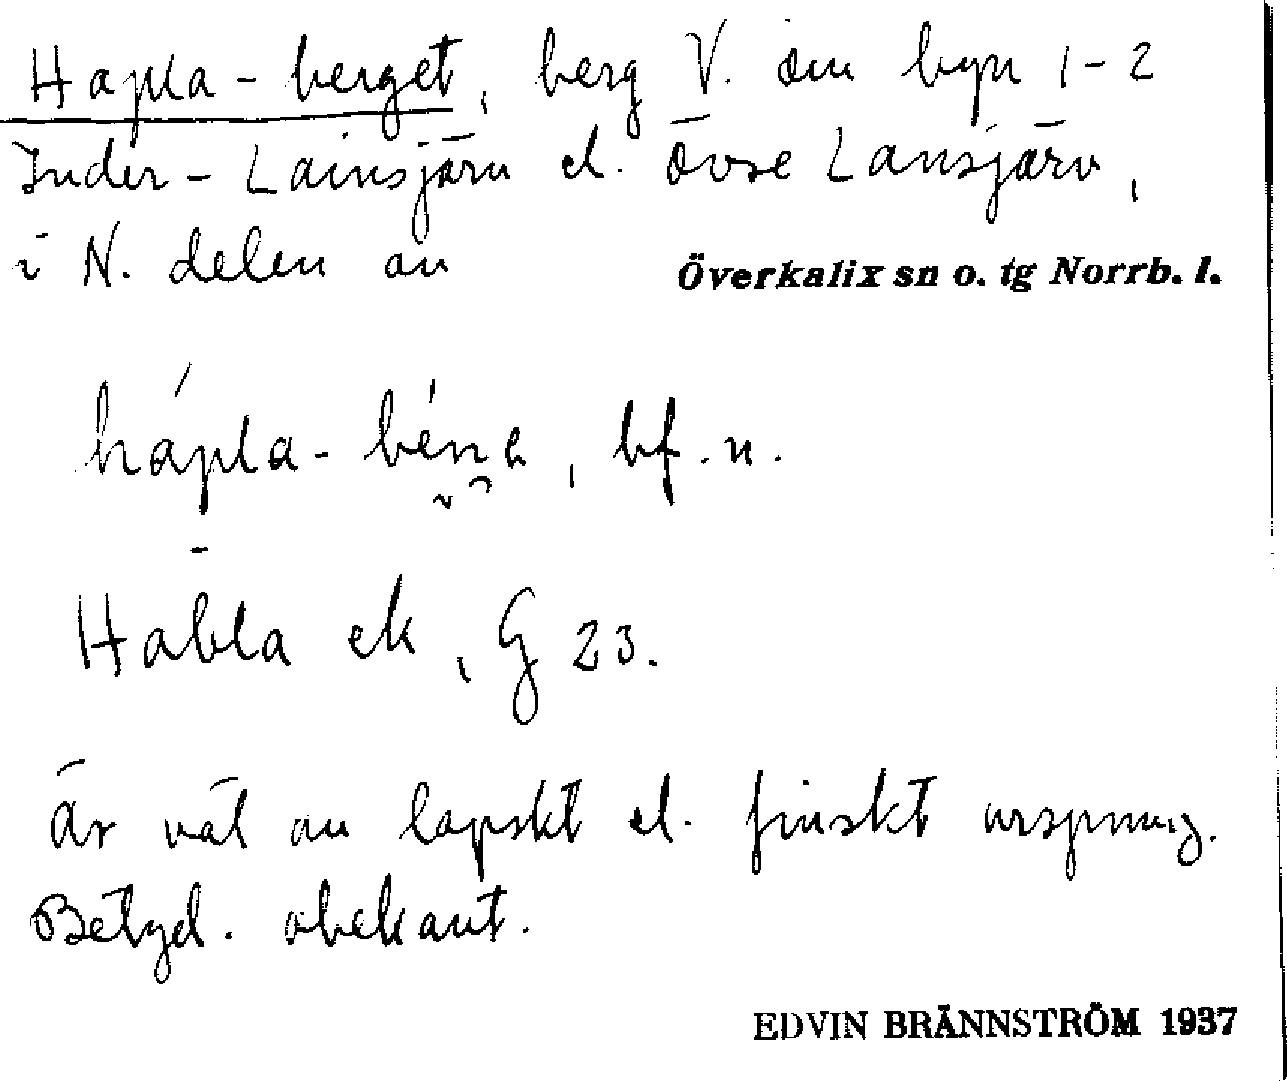 Hapla-berget, berg V. om byn 1-2
Inder-Lainsjärv el. övre Lansjärv,
i N. delen av Överkalix sn o. tg Norrb. l.
hápla- , bf. n.
Håbla ek, G 23.
Är väl av lapskt el. finskt ursprung.
Betyd. obekant.
EDVIN BRÄNNSTRÖM 1937